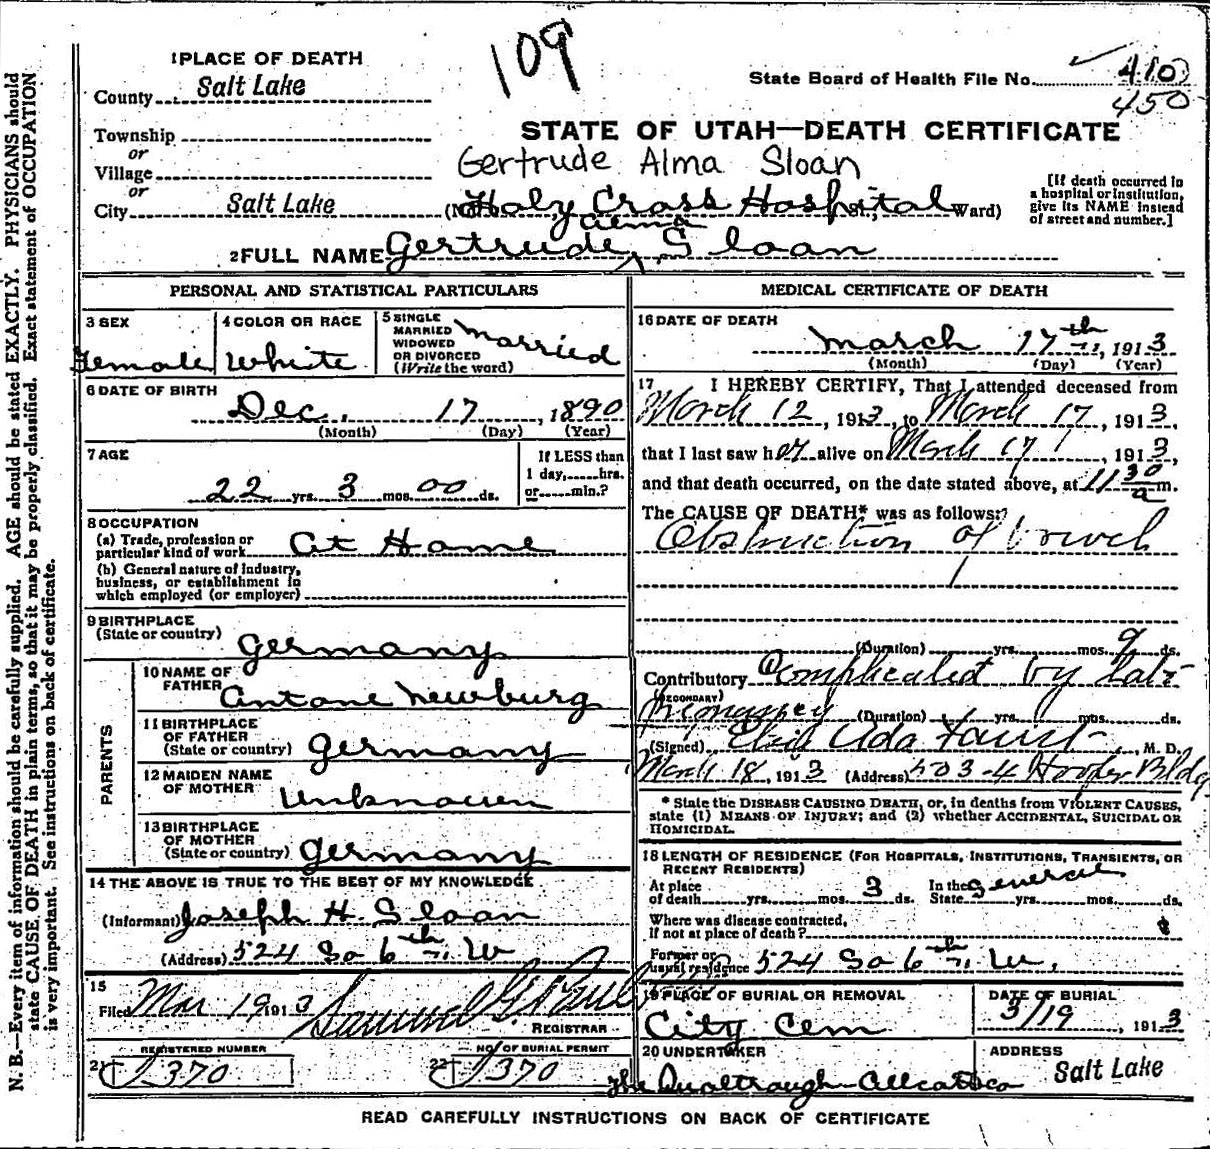 109
1 PLACE OF DEATH
County Salt Lake
State Board of Health File No. 410
450
Township
or
Village
or
City Salt Lake
STATE OF UTAH—DEATH CERTIFICATE
Gertrude Alma Sloan
(No. Holy Cross Hospital St.; Ward)
[If death occurred in
a hospital or institution,
give its NAME instead
of street and number.]
Alma
2 FULL NAME Gertrude Sloan
PERSONAL AND STATISTICAL PARTICULARS
3 SEX
Female
4 COLOR OR RACE
White
5 SINGLE
MARRIED
WIDOWED
OR DIVORCED
(Write the word)
Married
6 DATE OF BIRTH
Dec. 17, 1890
(Month) (Day) (Year)
7 AGE
22 yrs. 3 mos. 00 ds.
If LESS than
1 day,.....hrs.
or.....min.?
8 OCCUPATION
(a) Trade, profession or
particular kind of work At Home
(b) General nature of industry,
business, or establishment in
which employed (or employer)
9 BIRTHPLACE
(State or country) Germany
PARENTS
10 NAME OF
FATHER Antone Newburg
11 BIRTHPLACE
OF FATHER
(State or country) Germany
12 MAIDEN NAME
OF MOTHER Unknown
13 BIRTHPLACE
OF MOTHER
(State or country) Germany
14 THE ABOVE IS TRUE TO THE BEST OF MY KNOWLEDGE
(Informant) Joseph H. Sloan
(Address) 524 So 6th W
15
Filed Mar 19 1913 Samuel G.
REGISTRAR
REGISTERED NUMBER
21 370
NO. OF BURIAL PERMIT
22 370
MEDICAL CERTIFICATE OF DEATH
16 DATE OF DEATH
March 17th, 1913
(Month) (Day) (Year)
17 I HEREBY CERTIFY, That I attended deceased from
March 12, 1913, to March 17, 1913,
that I last saw her alive on March 17, 1913,
and that death occurred, on the date stated above, at 11 30 a m.
The CAUSE OF DEATH* was as follows:
Obstruction of bowel
(Duration) yrs. mos. 9 ds.
Contributory Complicated by late
(SECONDARY)
pregnancy (Duration) yrs. mos. ds.
(Signed) Ada Faust, M. D.
March 18, 1913 (Address) 503-4 Hooper Bldg
* State the DISEASE CAUSING DEATH, or, in deaths from VIOLENT CAUSES,
state (1) MEANS OF INJURY; and (2) whether ACCIDENTAL, SUICIDAL OR
HOMICIDAL.
18 LENGTH OF RESIDENCE (FOR HOSPITALS, INSTITUTIONS, TRANSIENTS, OR
RECENT RESIDENTS)
At place
of death yrs. mos. 3 ds.
In the
State yrs. mos. ds.
Where was disease contracted,
if not at place of death?
Former or
usual residence 524 So 6th W.
19 PLACE OF BURIAL OR REMOVAL
City Cem
DATE OF BURIAL
3/19, 1913
20 UNDERTAKER
ADDRESS
Salt Lake
READ CAREFULLY INSTRUCTIONS ON BACK OF CERTIFICATE
N. B.—Every item of information should be carefully supplied. AGE should be stated EXACTLY. PHYSICIANS should
state CAUSE OF DEATH in plain terms, so that it may be properly classified. Exact statement of OCCUPATION
is very important. See instructions on back of certificate.